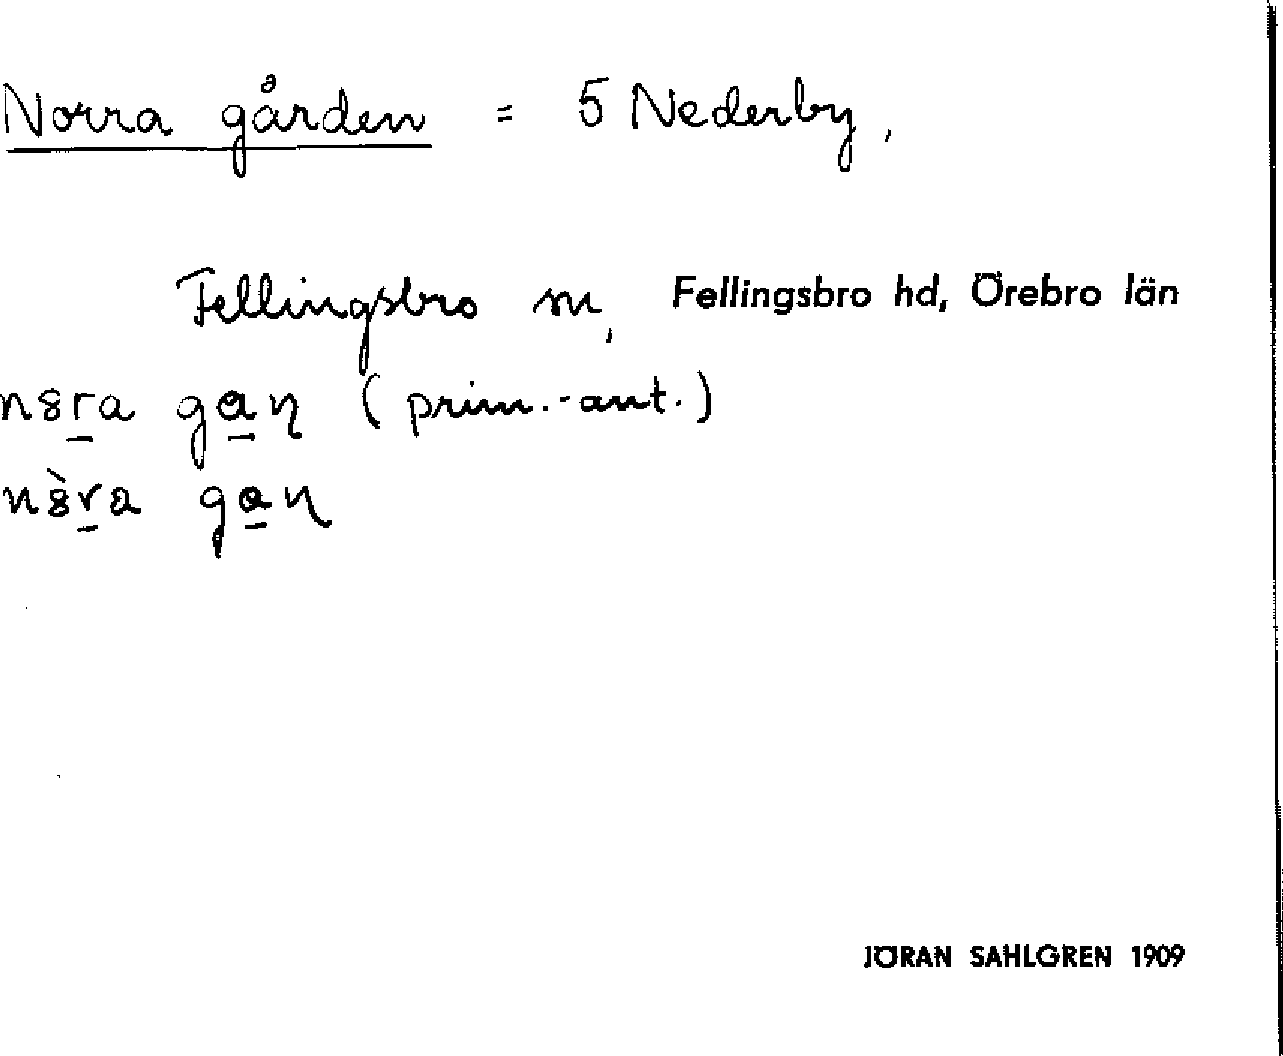 Norra gården = 5 Nederby,
Fellingsbro sn, Fellingsbro hd, Örebro län
n8r̲a ga̲ɳ (prim.-ant.)
n8̀r̲a ga̲ɳ
JÖRAN SAHLGREN 1909